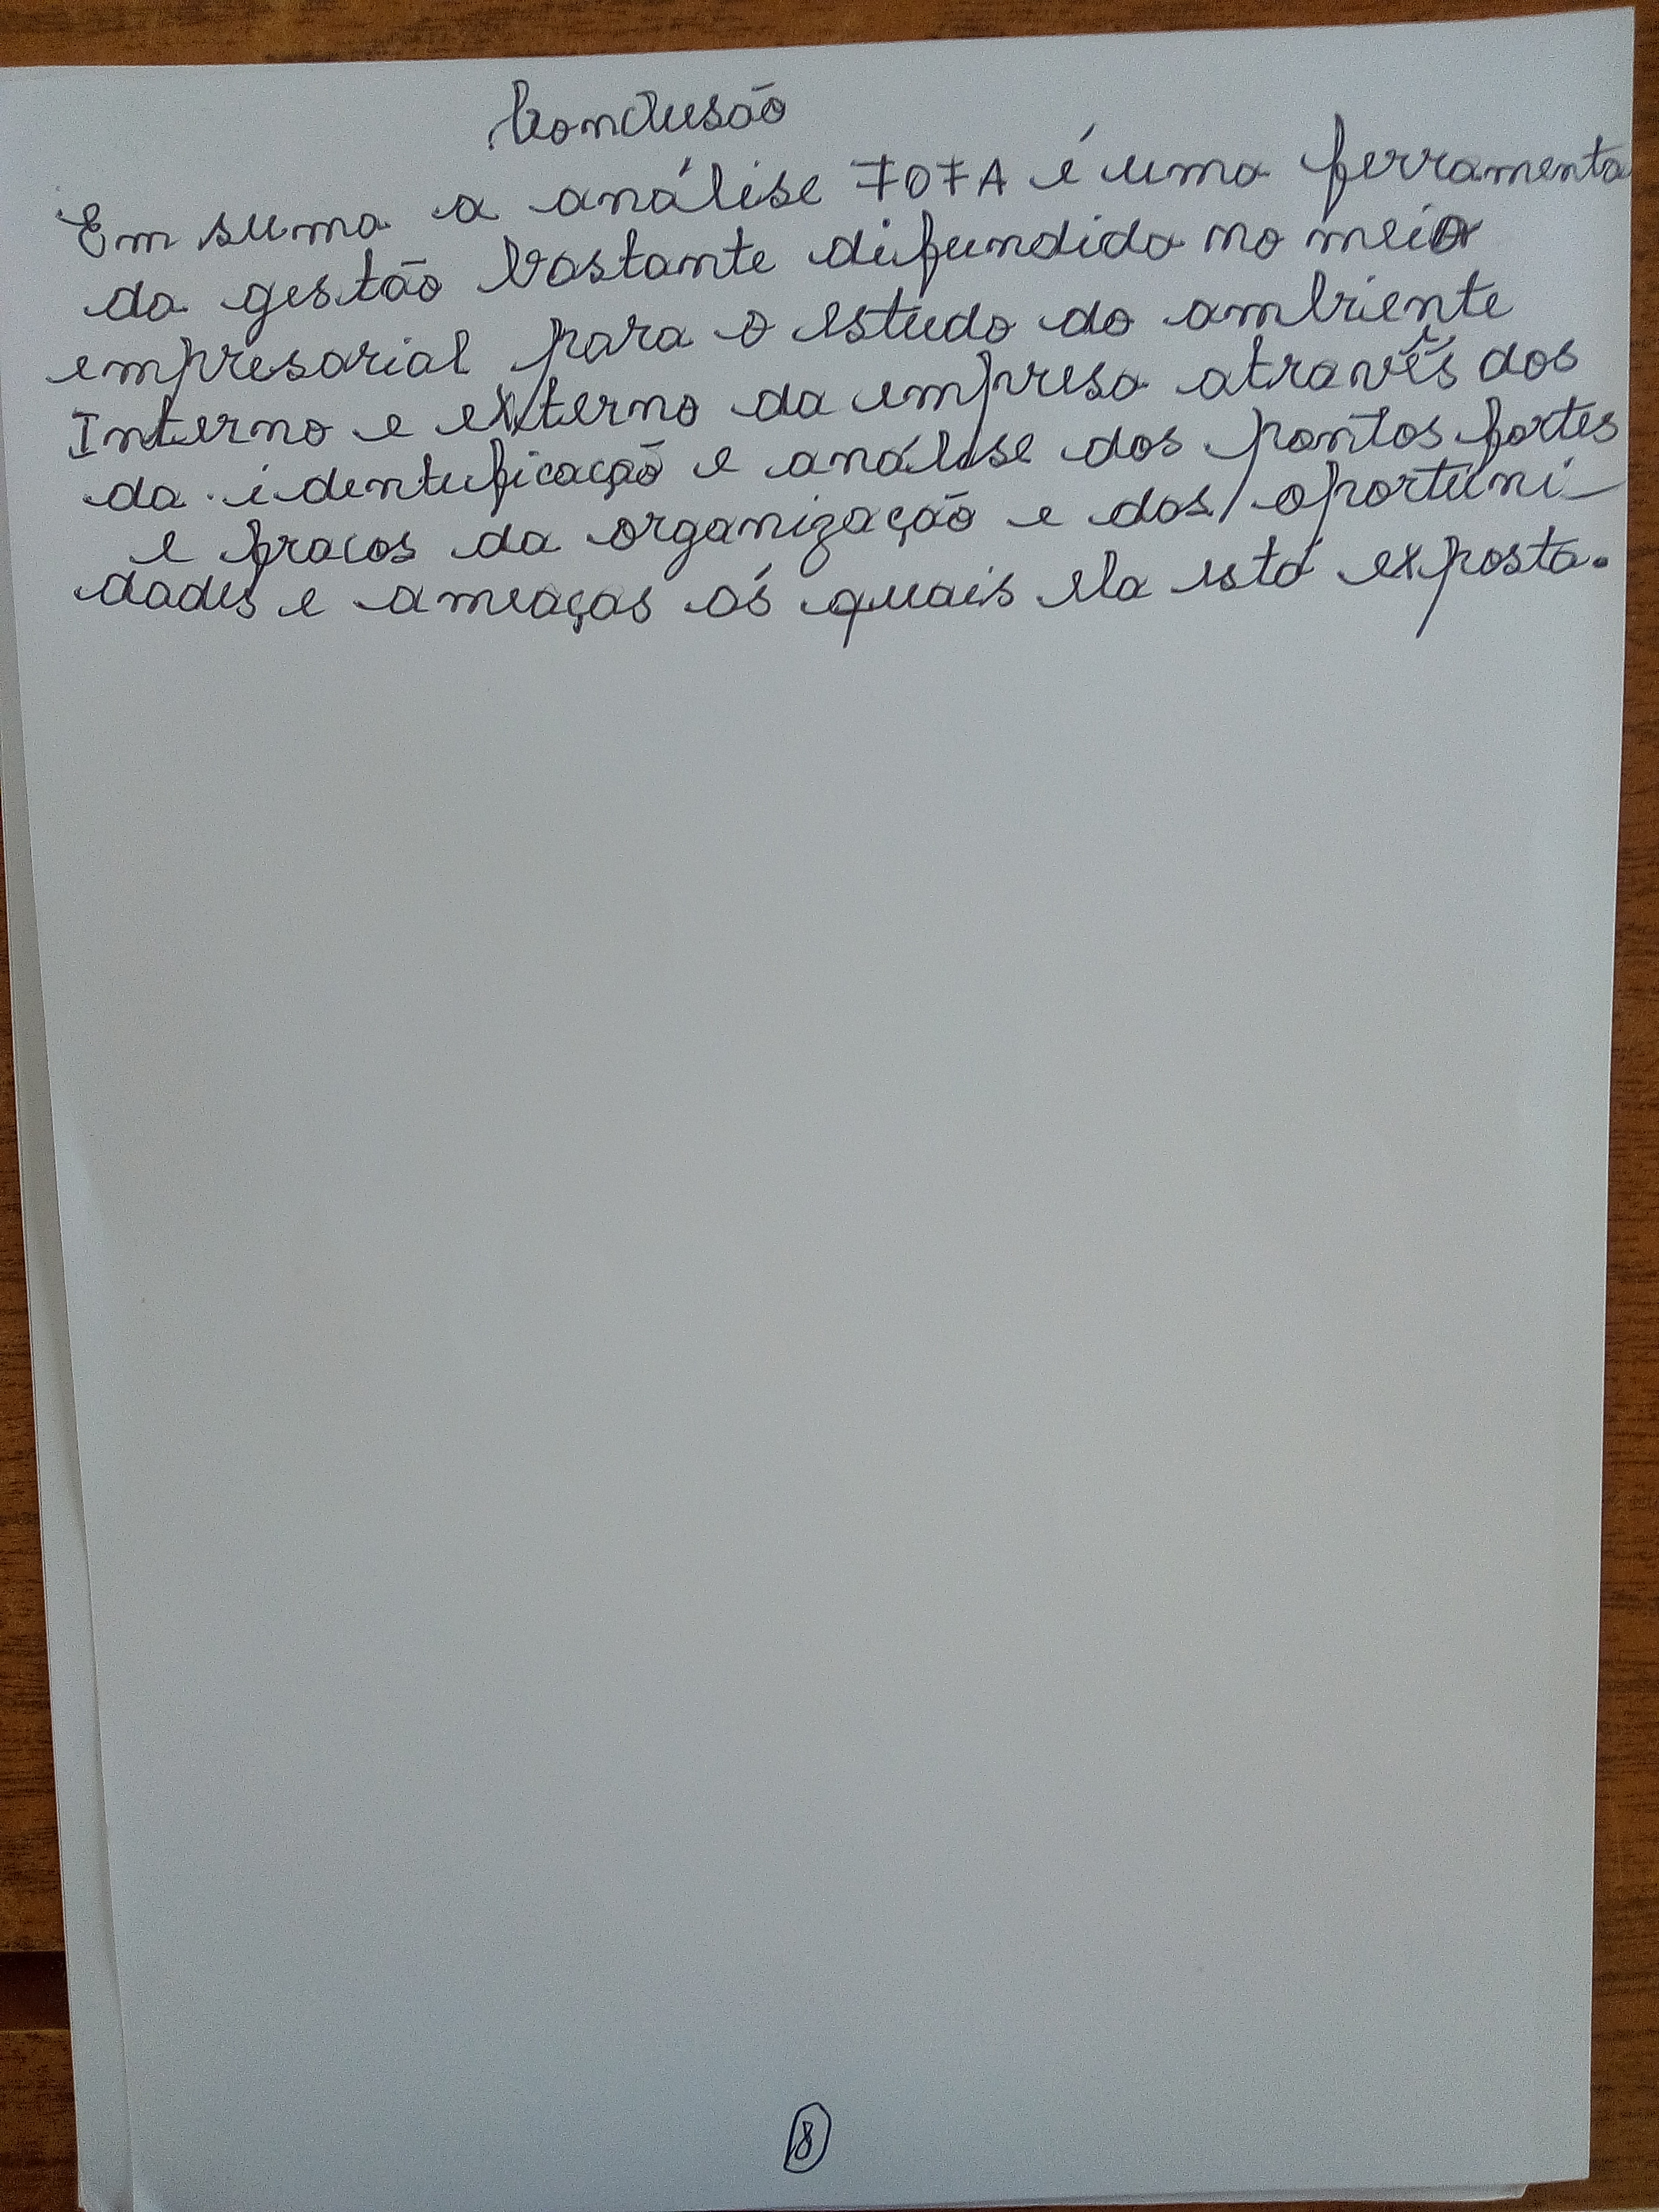 Conclusão
Em suma a análise FOFA é uma ferramenta
da gestão bastante difundida no meio
empresarial para o estudo do ambiente
Interno e externo da empresa através dos
da identificação e análise dos pontos fortes
e fracos da organização e das oportuni-
dades e ameaças ás quais ela está exposta.
8